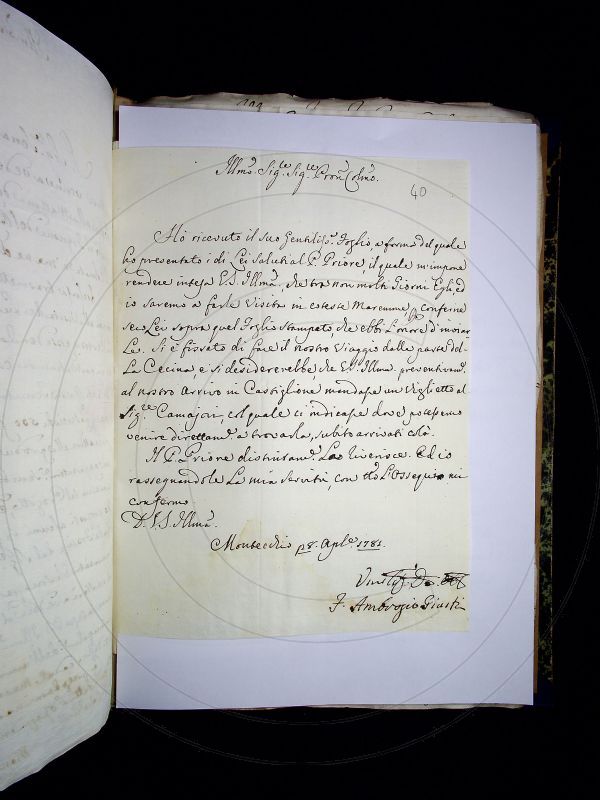 Illmo. Sigre. Sigre. Pron. Colmo.
40
Ho ricevuto il suo Gentiliss. Foglio, a forma del quale
ho presentato i di Lei Saluti al P. Priore, il quale m'impone
rendere intesa V.S. Illma., che tra non molti Giorni Egli, ed
io saremo a farle Visita in coteste Maremme, e conferire
seco Lei sopra quel Foglio stampato, che ebbi l'onore d'inviar
Le. Si è fissato di fare il nostro Viaggio dalla parte del-
La Cecina, e si desidererebbe, che V.S. Illma. preventivam.
al nostro Arrivo in Castiglione mandasse un Viglietto al
Sigre. Camajori, col quale ci indicasse dove potessemo
venire direttam. a trovarla, subito arrivati colà.
Il P. Priore distintam. La riverisce. Ed io
rassegnandole La mia servitù, con tto. L'Ossequio mi
confermo
D. V.S. Illma.
Montecchio p8. Aple. 1781.
F. Ambrogio Giusti